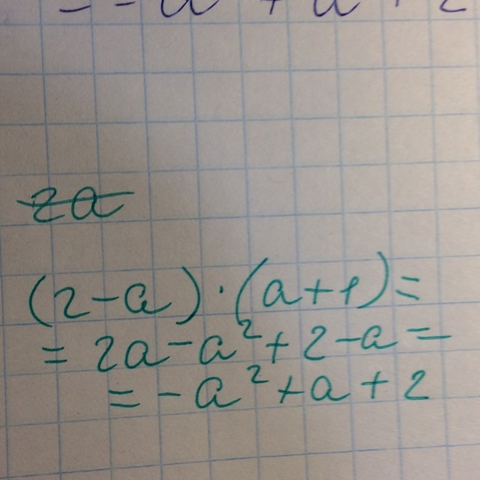 = -a² + a + 2
2a
(2-a)·(a+1)=
= 2a-a²+2-a=
= -a²+a+2